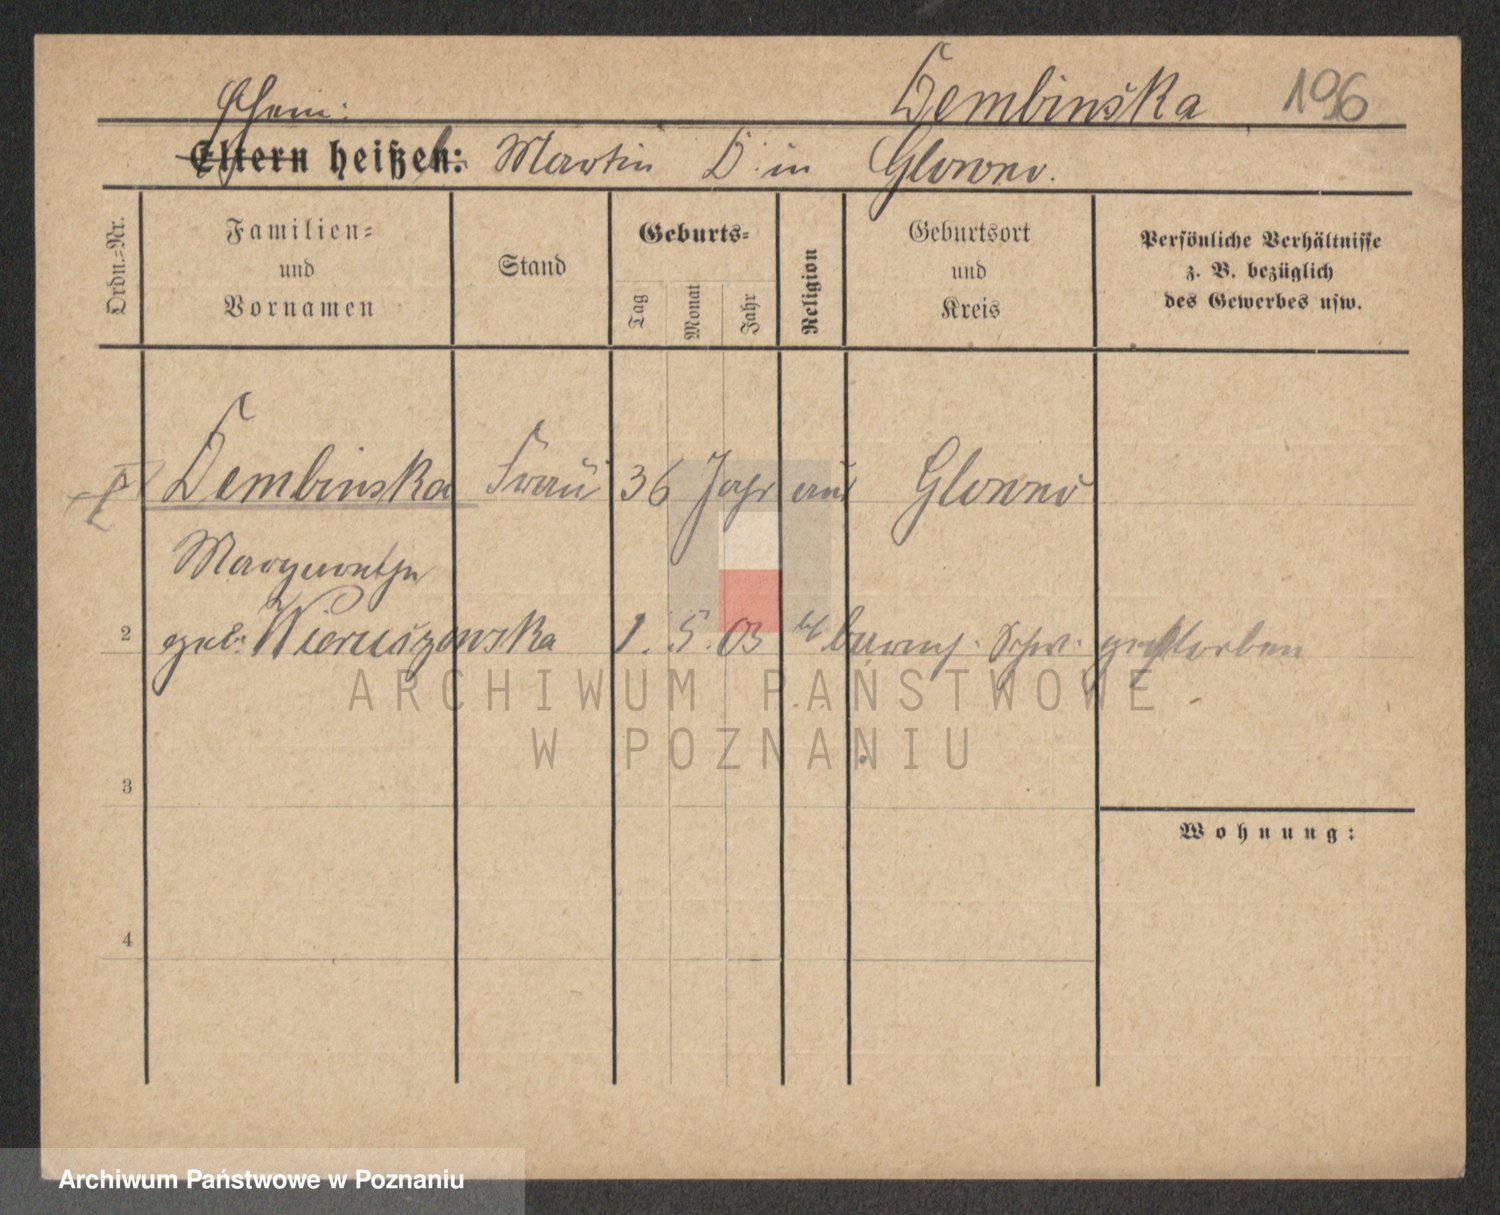 Dembinska 196
Ehem:
Eltern heißen: Martin D. in Glowno.
Ordn.=Nr.
Familien=
und
Vornamen
Stand
Geburts=
Tag
Monat
Jahr
Religion
Geburtsort
und
Kreis
Persönliche Verhältnisse
z. B. bezüglich
des Gewerbes usw.
Dembinska Frau 36 Jahr aus Glowno
Margarethe
2 geb. Wieruszowska 1. 5. 03 barmh. Schw. gestorben
ARCHIWUM PAŃSTWOWE
W POZNANIU
3
Wohnung:
4
Archiwum Państwowe w Poznaniu